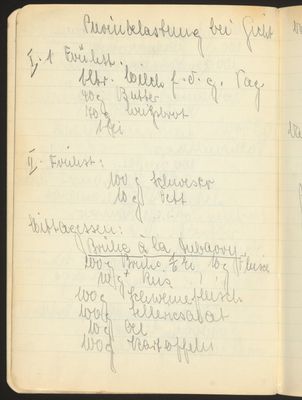 Purinbelastung bei Gicht
I. 1 Frühst.
1 ltr. Milch f. d. g. Tag
40 g Butter
70 g Weißbrot
1 Ei
II. Frühst:
100 g
10 g Fett
Mittagessen:
Brühe à la
200 g Brühe, Ei, 10 g Fleisch
10 g Reis
100 g Schweinefleisch
100 g Selleriesalat
10 g Oel
100 g Kartoffeln